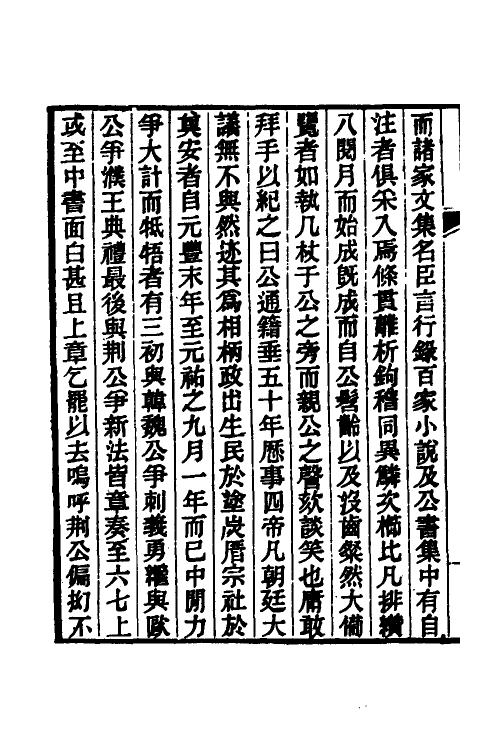 而諸家文集名臣言行錄百家小說及公書集中有自
注者俱采入焉條貫離析鉤稽同異鱗次櫛比凡排纘
八閱月而始成旣成而自公髫齡以及沒齒粲然大備
覽者如執几杖于公之旁而親公之謦欬談笑也庸敢
拜手以紀之曰公通籍垂五十年歷事四帝凡朝廷大
議無不與然迹其爲相柄政出生民於塗炭厝宗社於
奠安者自元豐末年至元祐之九月一年而已中閒力
爭大計而牴牾者有三初與韓魏公爭刺義勇繼與歐
公爭濮王典禮最後與荆公爭新法皆章奏至六七上
或至中書面白甚且上章乞罷以去嗚呼荆公偏拗不